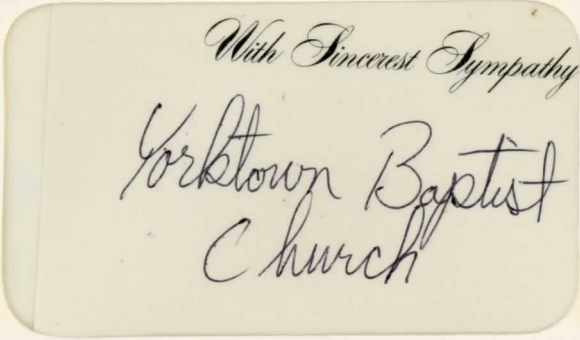 With Sincerest Sympathy
Yorktown Baptist
Church